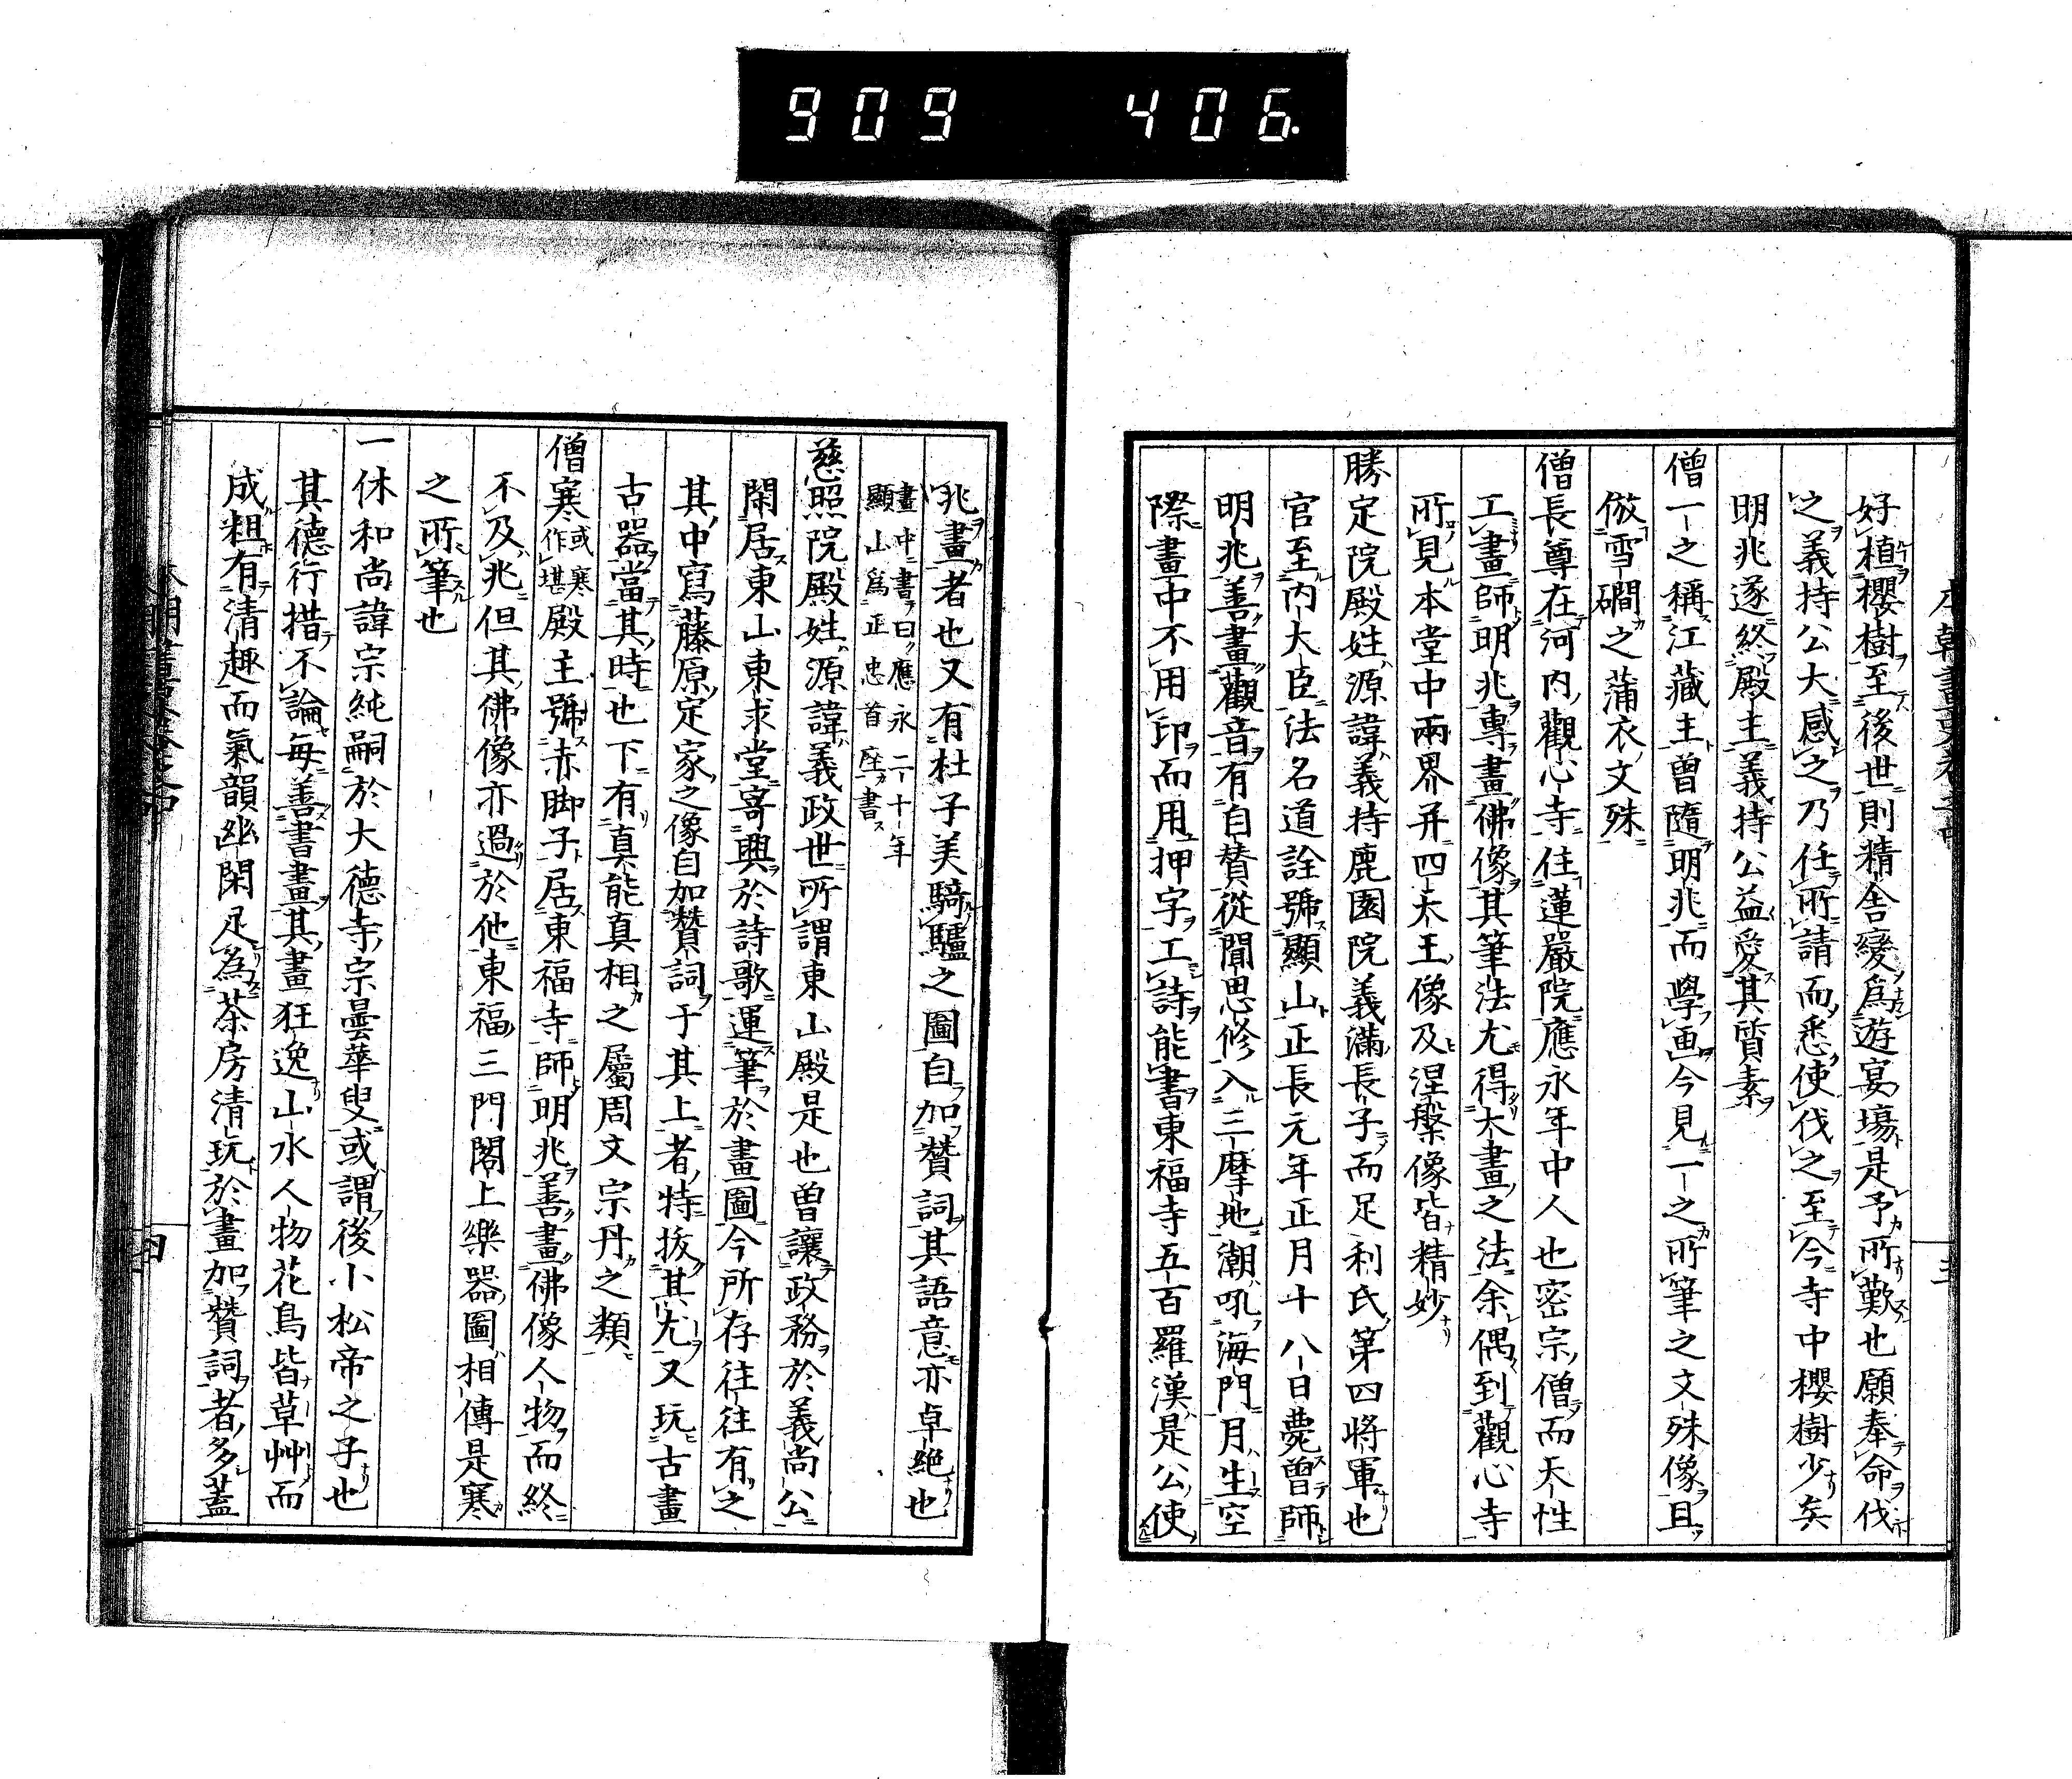 909 406
好植櫻樹至後世則精舍變爲遊宴場是予所歎也願奉命伐
之義持公大感之乃任所請而悉使伐之至今寺中櫻樹少矣
明兆遂終殿主義持公益愛其質素
僧一之稱江藏主曾隨明兆而學画今見一之所筆之文殊像且
倣雪磵之蒲衣文殊
僧長尊在河內觀心寺住蓮嚴院應永年中人也密宗僧而天性
工畫師明兆專畫佛像其筆法尤得大畫之法余偶到觀心寺
所見本堂中兩界幷四天王像及涅槃像皆精妙
勝定院殿姓源諱義持鹿園院義滿長子而足利氏第四將軍也
官至內大臣法名道詮號顯山正長元年正月十八日薨曾師
明兆善畫觀音有自賛從聞思修入三摩地潮吼海門月生空
際畫中不用印而用押字工詩能書東福寺五百羅漢是公使
兆畫者也又有杜子美騎驢之圖自加贊詞其語意亦卓絕也
畫中書曰應永二十年
顯山爲正忠首座書
慈照院殿姓源諱義政世所謂東山殿是也曾讓政務於義尚公
閑居東山東求堂寄興於詩歌運筆於畫圖今所存往往有之
其中寫藤原定家之像自加贊詞于其上者特拔其尤又玩古畫
古器當其時也下有真能真相之屬周文宗丹之類
僧寒或寒作堪殿主號赤脚子居東福寺師明兆善畫佛像人物而終
不及兆但其佛像亦過於他東福三門閣上樂器圖相傳是寒
之所筆也
一休和尚諱宗純嗣於大德寺宗曇華叟或謂後小松帝之子也
其德行措不論每善書畫其畫狂逸山水人物花鳥皆草艸而
成粗有清趣而氣韻幽閑足為茶房清玩於畫加贊詞者多蓋